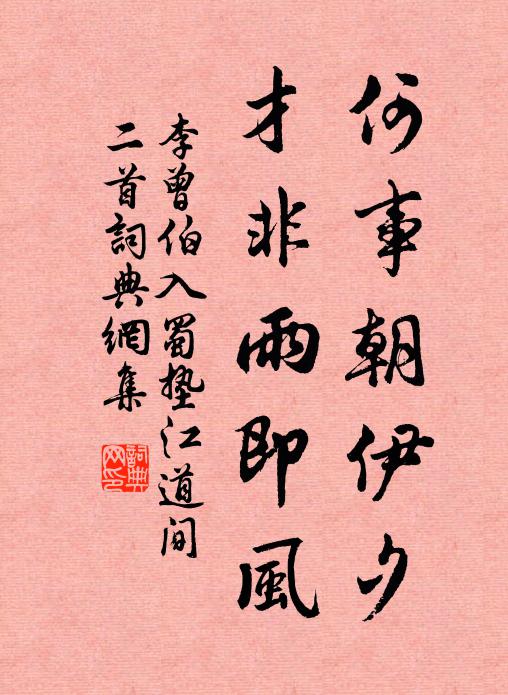 何事朝伊夕
才非雨即風
李曾伯入蜀墊江道间
二首詞典網集
詞典网印